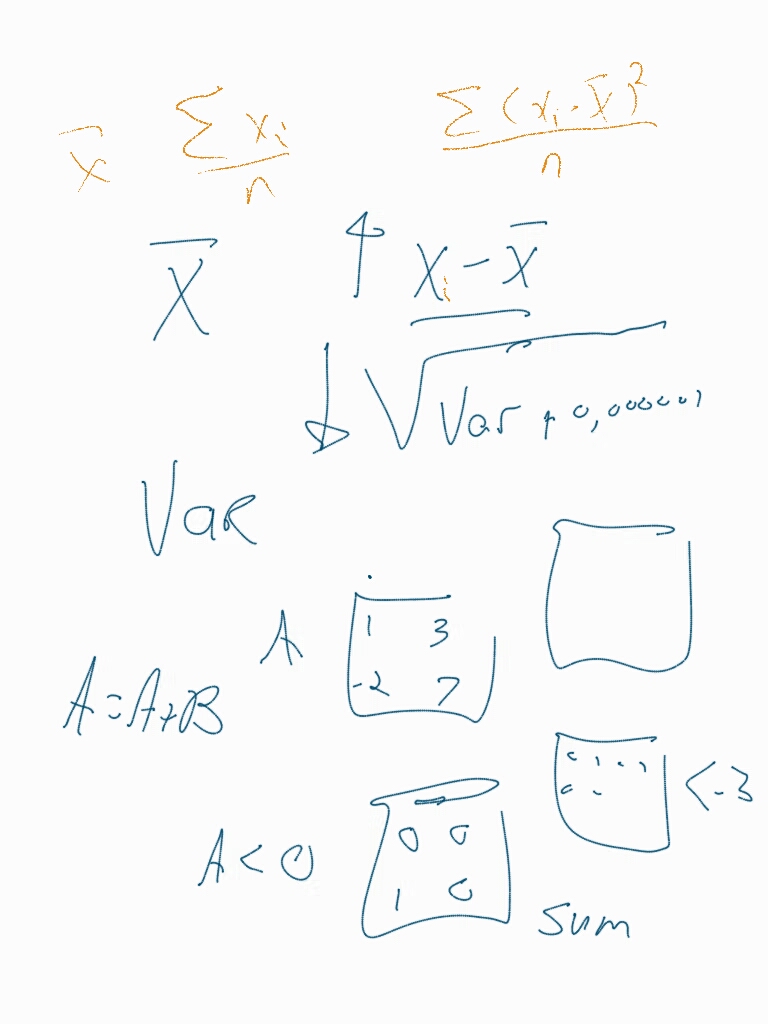 x̄ Σxᵢ/n Σ(xᵢ-x̄)²/n
X̄ ↑ xᵢ-x̄
↓ √Var + 0,000001
Var
A
1 3
-2 7
A=A+B
<-3
A<0
0 0
1 0
sum